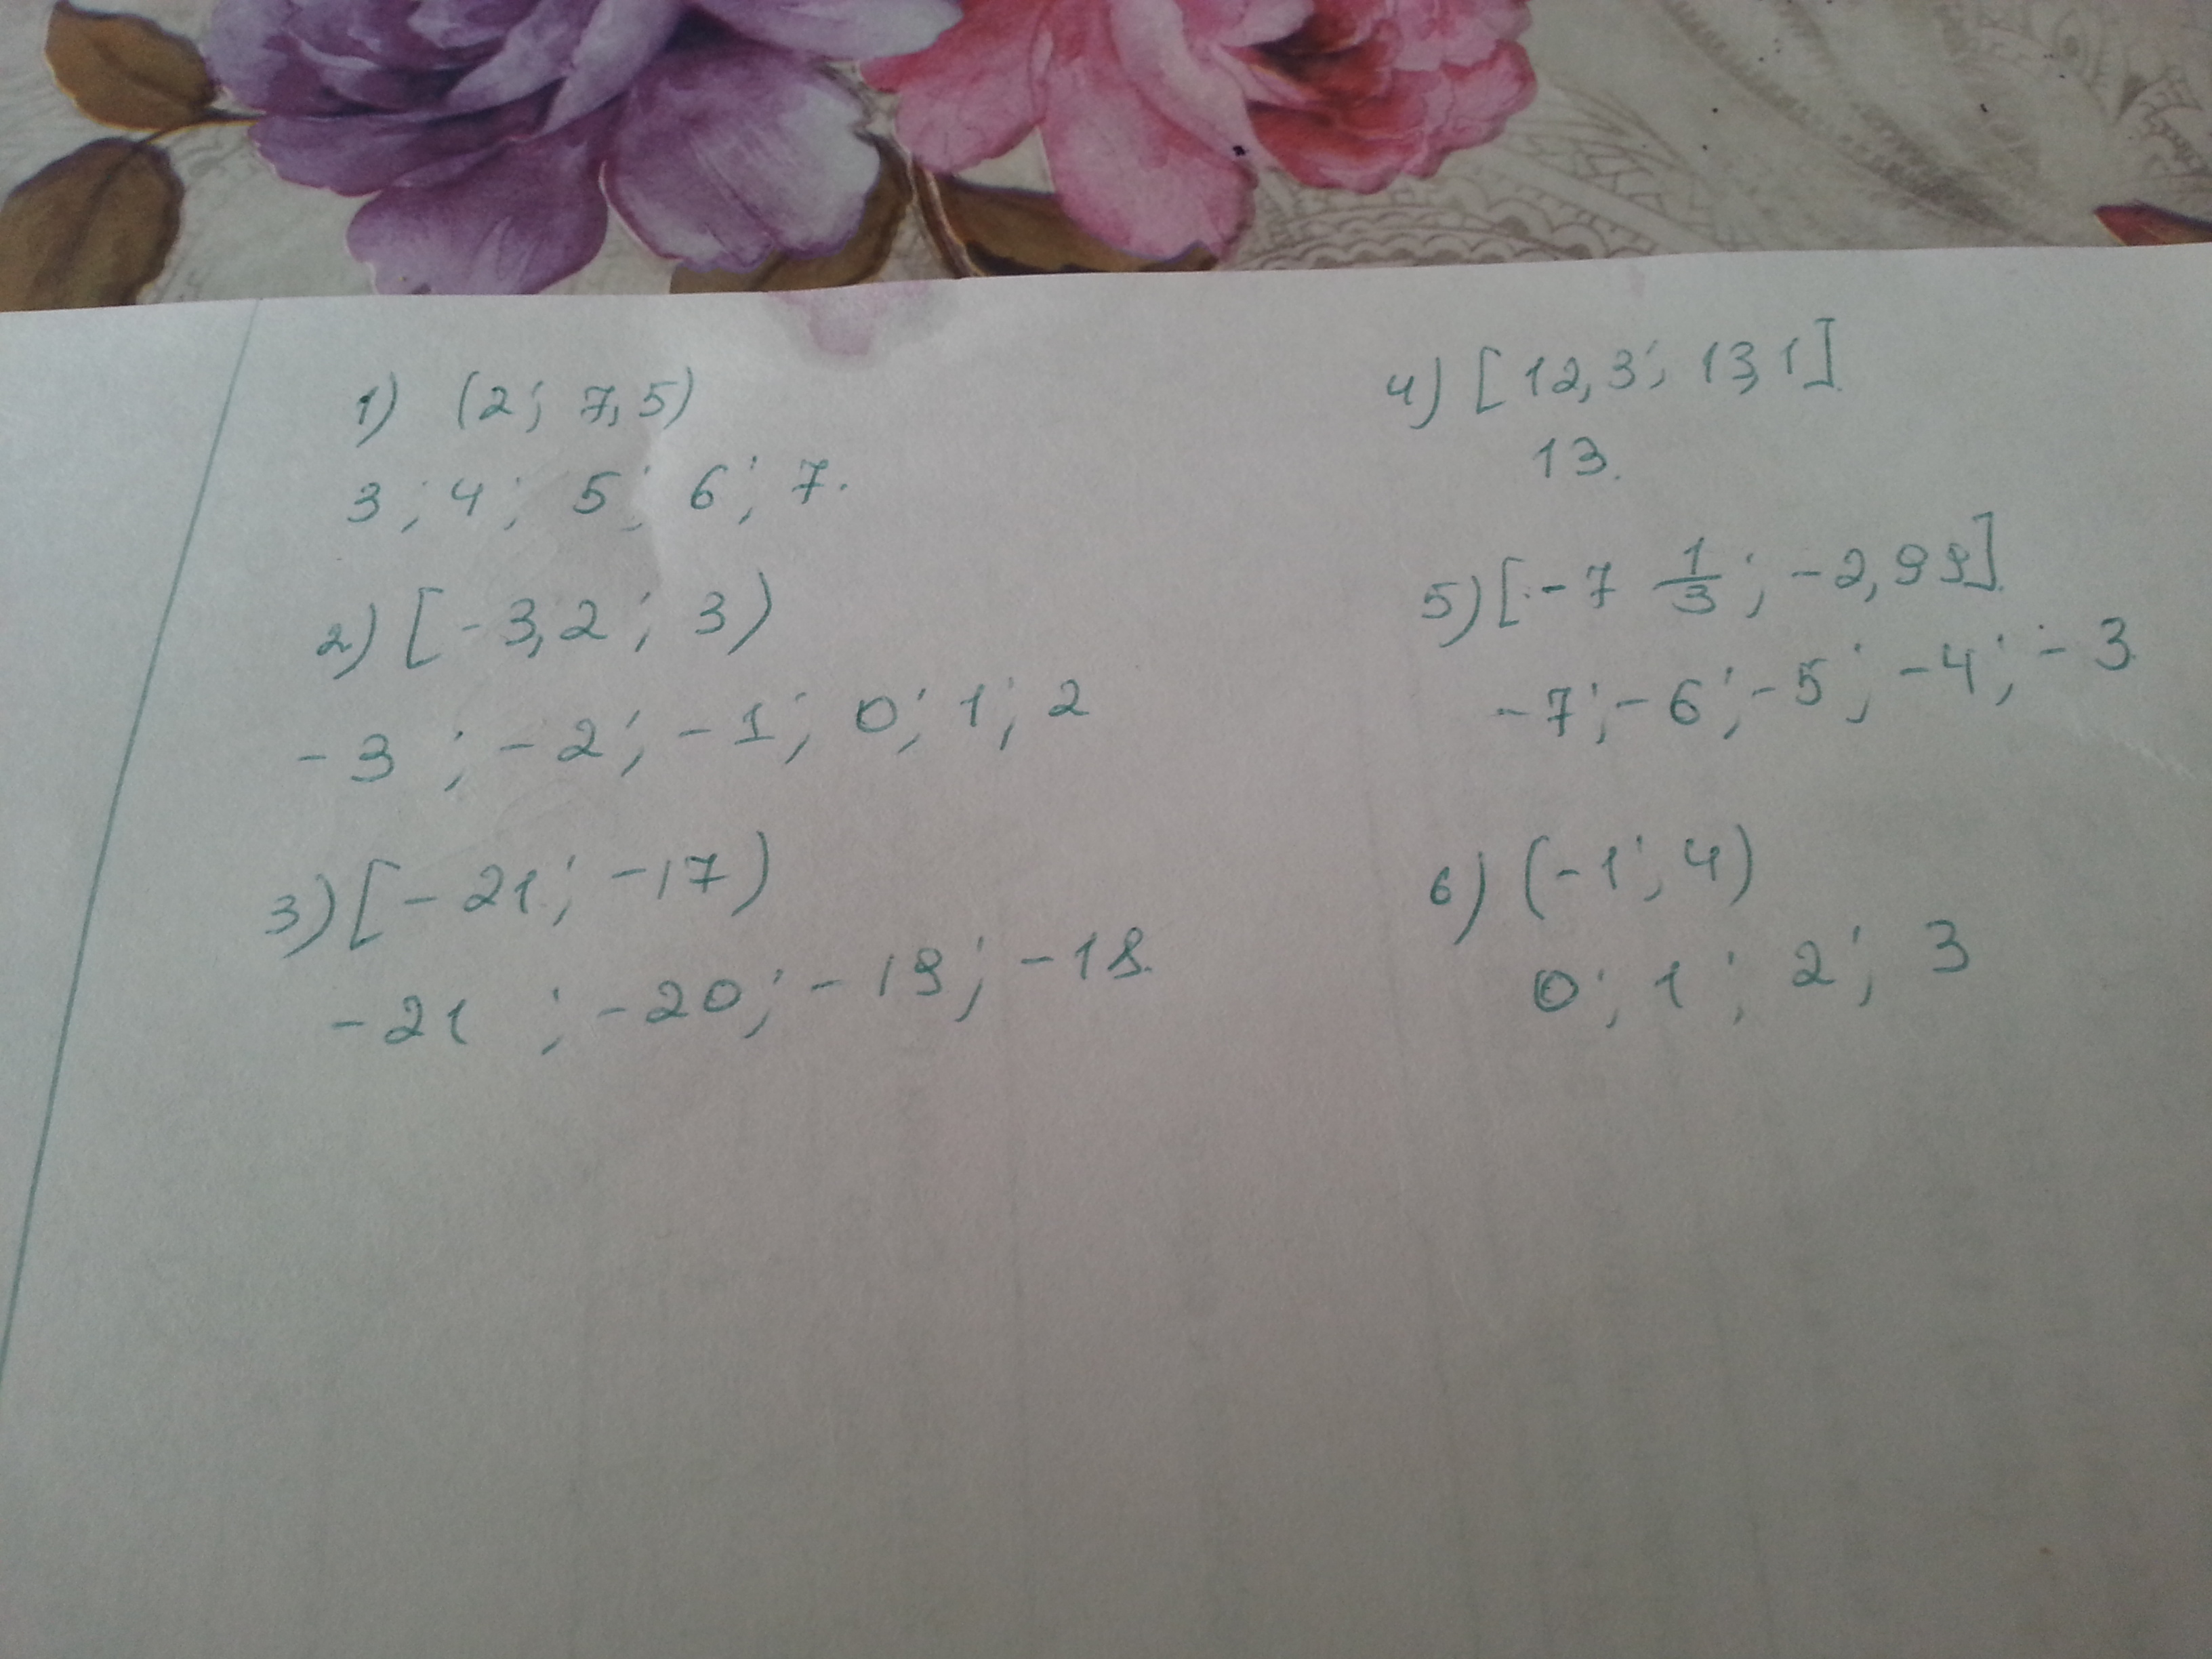 1) (2; 7,5)
3; 4; 5; 6; 7.
2) [-3,2; 3)
-3; -2; -1; 0; 1; 2
3) [-21; -17)
-21; -20; -19; -18.
4) [12,3; 13,1]
13.
5) [-7 1/3; -2,99]
-7; -6; -5; -4; -3
6) (-1; 4)
0; 1; 2; 3